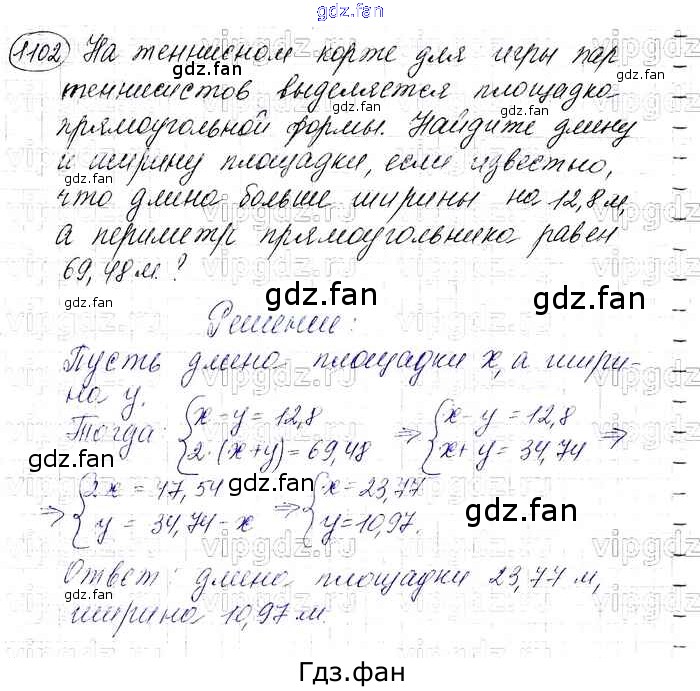 gdz.fan
1102 На теннисном корте для игры пар
gdz.fan gdz.fan
теннисистов выделяется площадка
прямоугольной формы. Найдите длину
и ширину площадки, если известно,
gdz.fan gdz.fan
что длина больше ширины на 12,8 м,
а периметр прямоугольника равен
69,48 м.?
gdz.fan gdz.fan
gdz.fan gdz.fan
Решение:
Пусть длина площадки x, а шири-
на y.
gdz.fan gdz.fan
Тогда: { x – y = 12,8 => { x – y = 12,8
2·(x+y) = 69,48 x + y = 34,74 =>
gdz.fan gdz.fan
=> { 2x = 47,54 => { x = 23,77
y = 34,74 – x y = 10,97.
gdz.fan gdz.fan
Ответ: длина площадки 23,77 м,
gdz.fan gdz.fan
ширина 10,97 м.
Гдз.фан